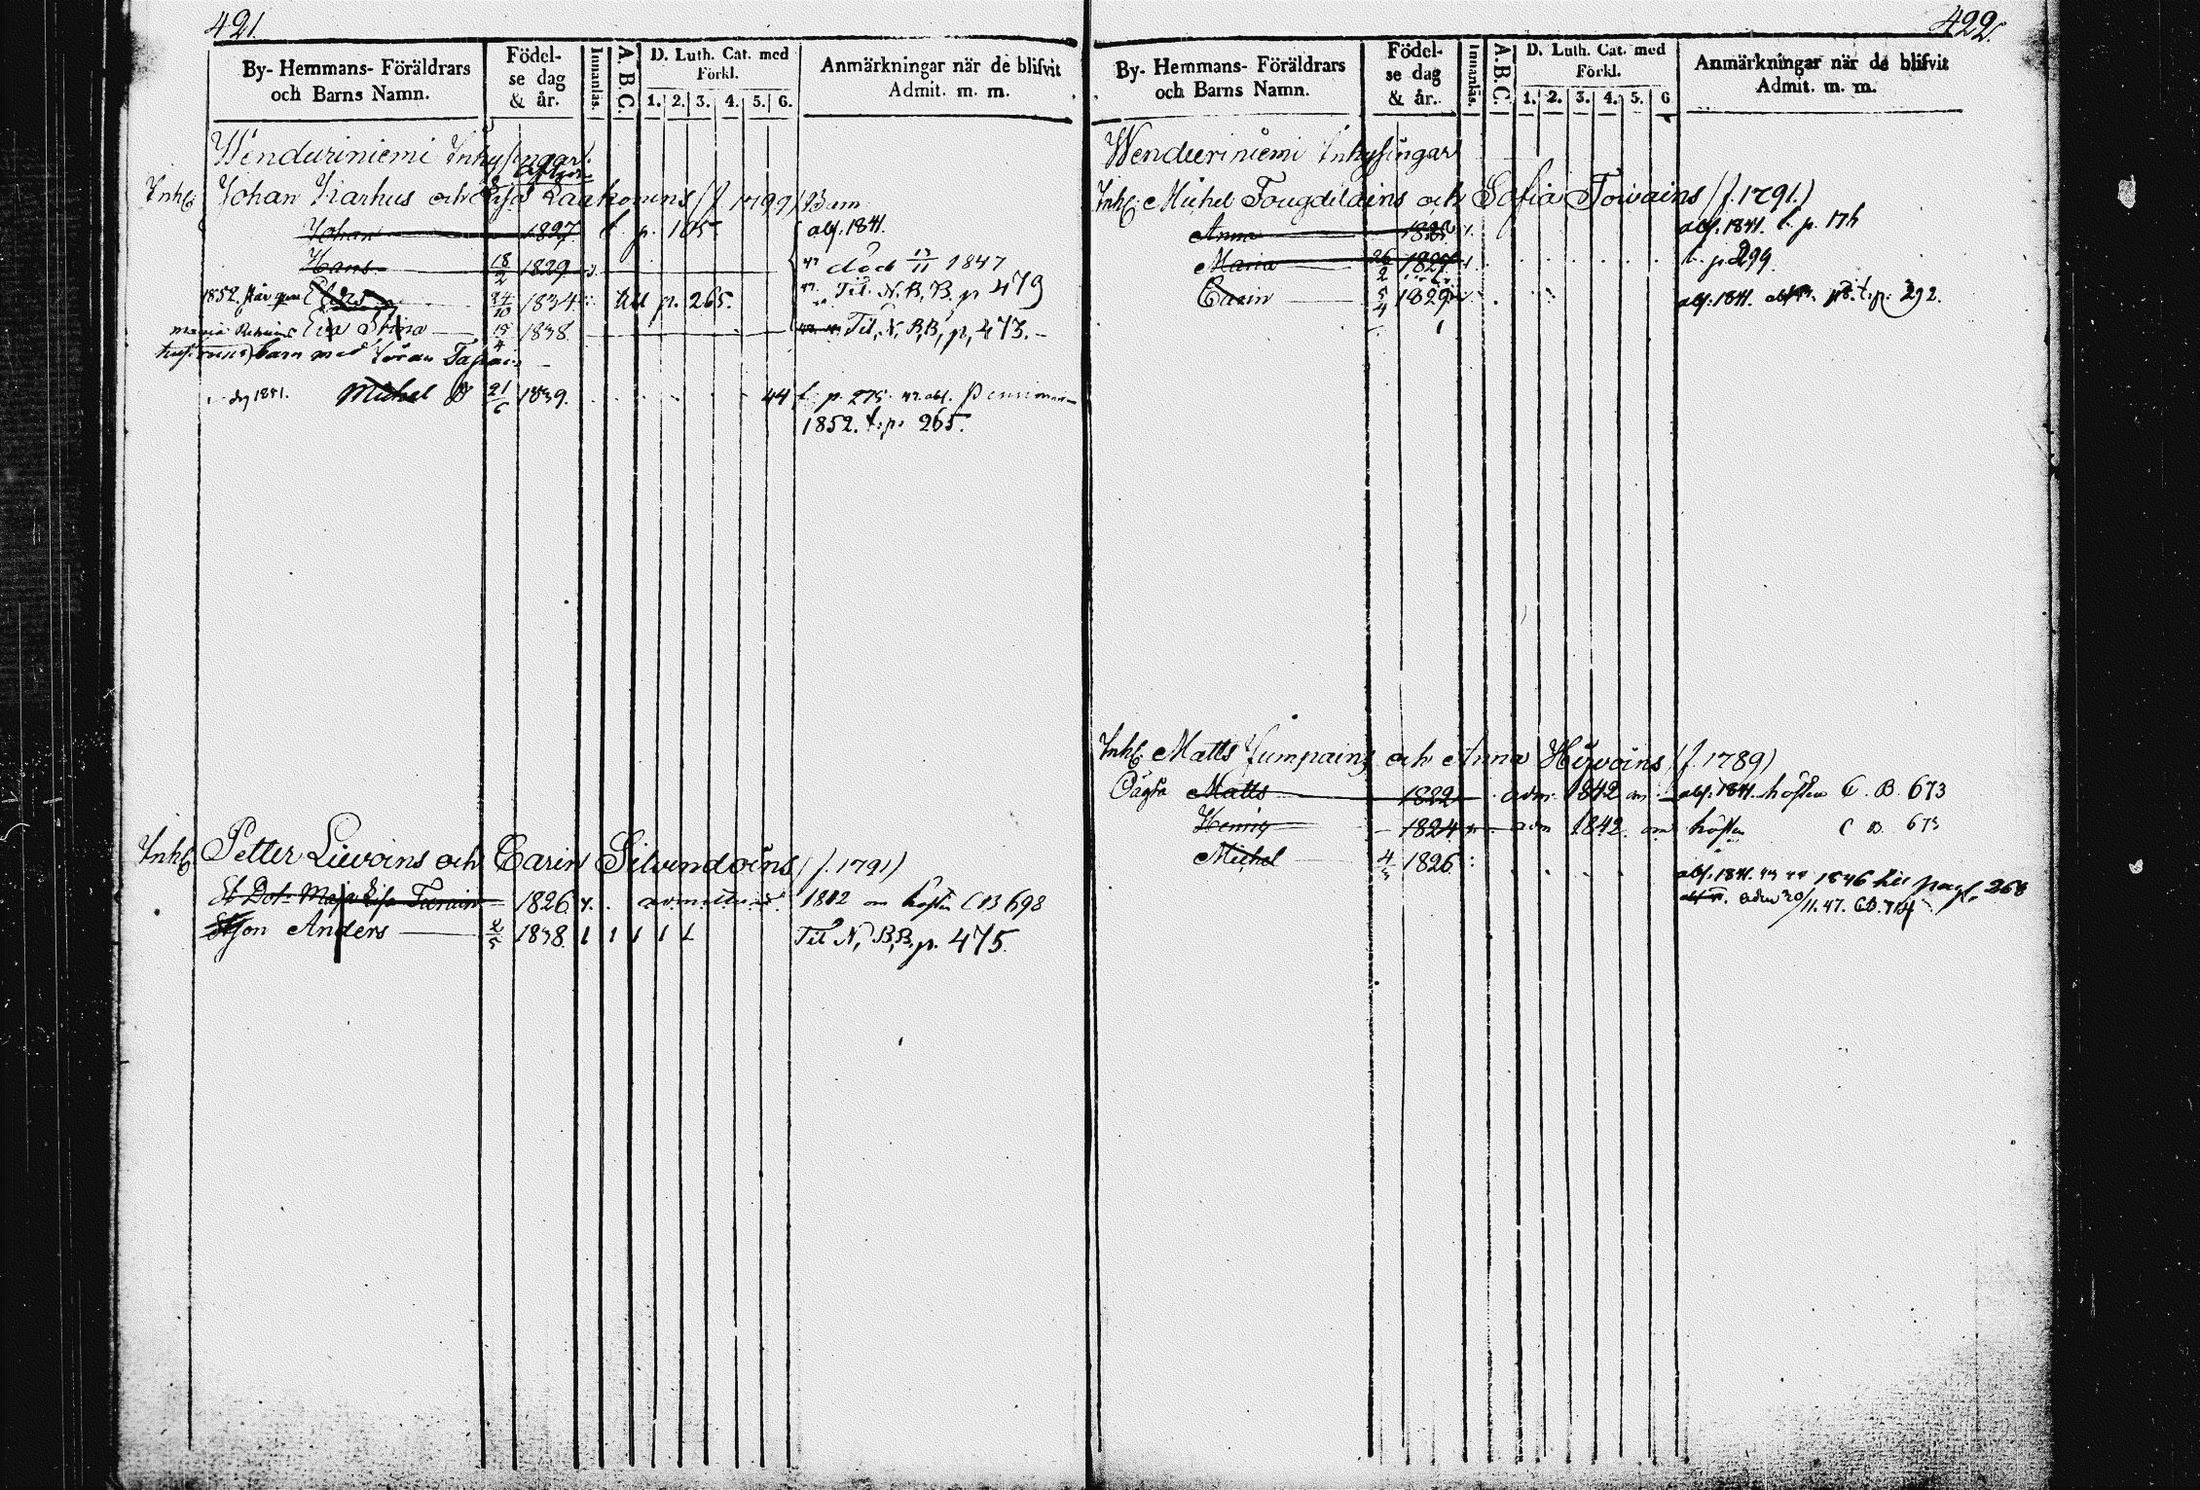 421.
By- Hemmans- Föräldrars och Barns Namn.
Födel-se dag & år.
Innanläs.
A. B. C.
D. Luth. Cat. med Förkl.
1. 2. 3. 4. 5. 6.
Anmärkningar när de blifvit Admit. m. m.
Wenduriniemi Inhysingar.
Inh: Johan Karhus och Lisa (f 1799) Barn
Johan 1827 t. p. 105 abs. 1841.
Hans 18/2 1829 död 17/11 1847
1852 Elias 24/10 1834 till p. 265. Til. N. B, B. p 479
Eva Stina 15/4 1838 Til, N, B, B, p, 473.
barn med Göran
1841. Michel 21/6 1839. 44 t. p. 275
1852. t. p. 265.
Inh: Petter Liwoins och Carin Silvendoins (f. 1791)
Dot. Maja Lisa 1826 1842 om hösten C B 698
Son Anders 2/5 1838 1 1 1 1 1 Til N, B, B, p. 475.
422.
By- Hemmans- Föräldrars och Barns Namn.
Födel-se dag & år.
Innanläs.
A. B. C.
D. Luth. Cat. med Förkl.
1. 2. 3. 4. 5. 6
Anmärkningar när de blifvit Admit. m. m.
Wenduriniemi Inhysingar
Inh: Michel Tougdilains och Sofia Toivains (f. 1791.)
Anna abs. 1841. t. p.
Maria 26/2 1827 t. p 299.
Carin 5/4 1829 abs. 1841. t. p. 292.
Inh: Matts Jumpains och Anna Hirvoins (f. 1789)
Matts 1822 adm 1842 om abs. 1841. hösten C. B. 673
Henrig 1824 adm 1842 om hösten C B 673
Michel 1826 abs. 1841. 1846 268
adm 30/11. 47. CB. 714